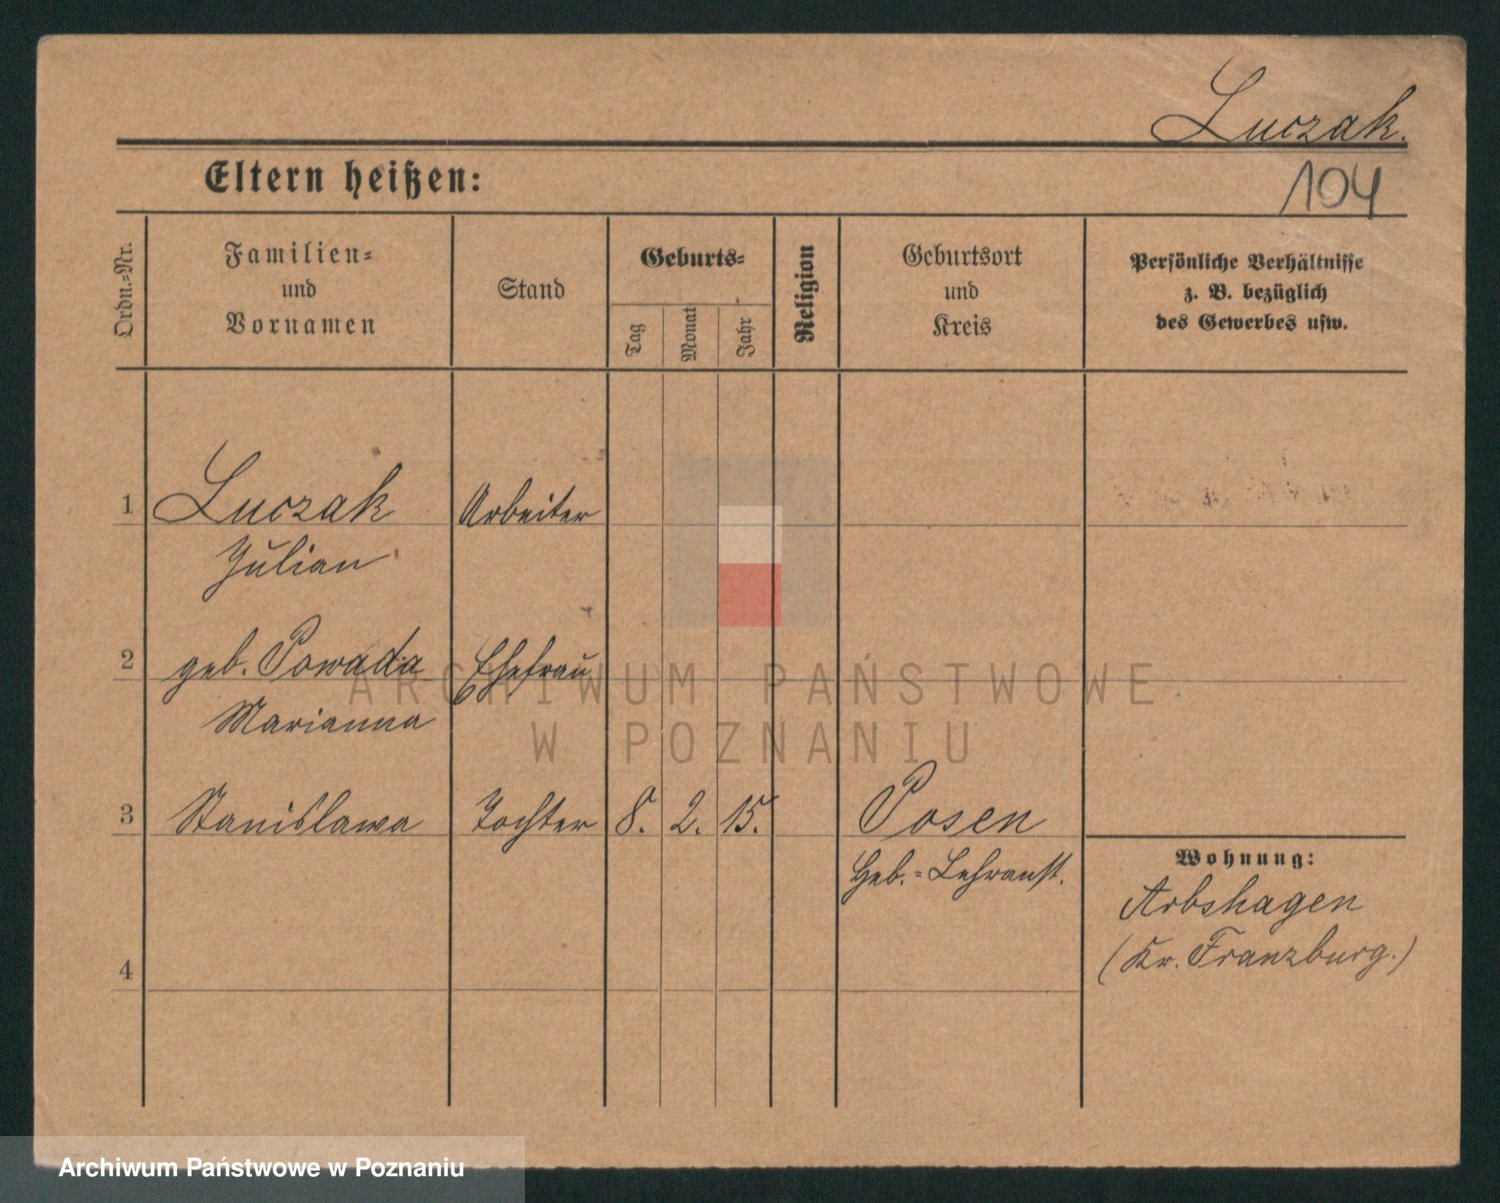 Luczak.
Eltern heißen:
104
Ordn.-Nr.
Familien-
und
Vornamen
Stand
Geburts-
Tag
Monat
Jahr
Religion
Geburtsort
und
Kreis
Persönliche Verhältnisse
z. B. bezüglich
des Gewerbes usw.
1 Luczak Arbeiter
Julian
2 geb. Powada Ehefrau
Marianna
3 Stanislawa Tochter 8. 2. 15. Posen
Heb.-Lehranst.
Wohnung:
Arbshagen
(Kr. Franzburg.)
4
ARCHIWUM PAŃSTWOWE
W POZNANIU
Archiwum Państwowe w Poznaniu